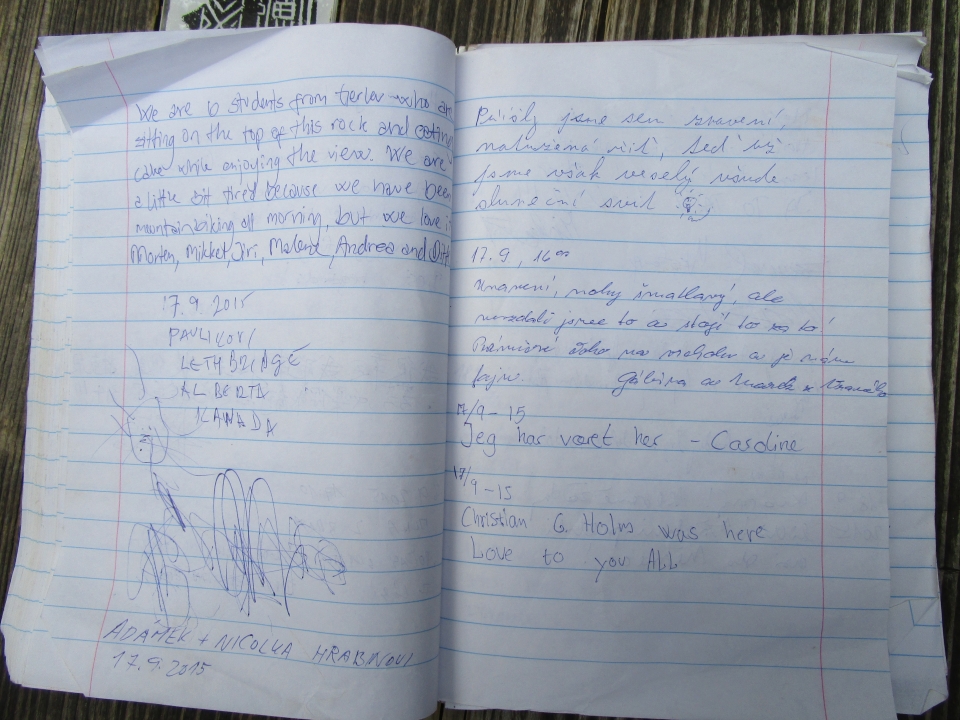 We are 6 students from who are
sitting on the top of this rock and eating
cake while enjoying the view. We are
a little bit tired because we have been
mountainbiking all morning, but we love it
Morten, Mikkel, Jiri, Malene, Andrea and
17.9.2015
PAVLIKOVI
LETHBRIDGE
ALBERTA
KANADA
ADÁMEK + NICOLKA HRABINOVI
17.9.2015
jsme sem znavení,
teď už
jsme však veselý všude
sluneční svit
17.9, 16°°
znavení, nohy šmatlavý, ale
nevzdali jsme to a stojí to za to!
na vrcholu a je nám
fajn. a
17/9-15
Jeg har været her - Caroline
17/9-15
Christian G. Holm was here
Love to you ALL